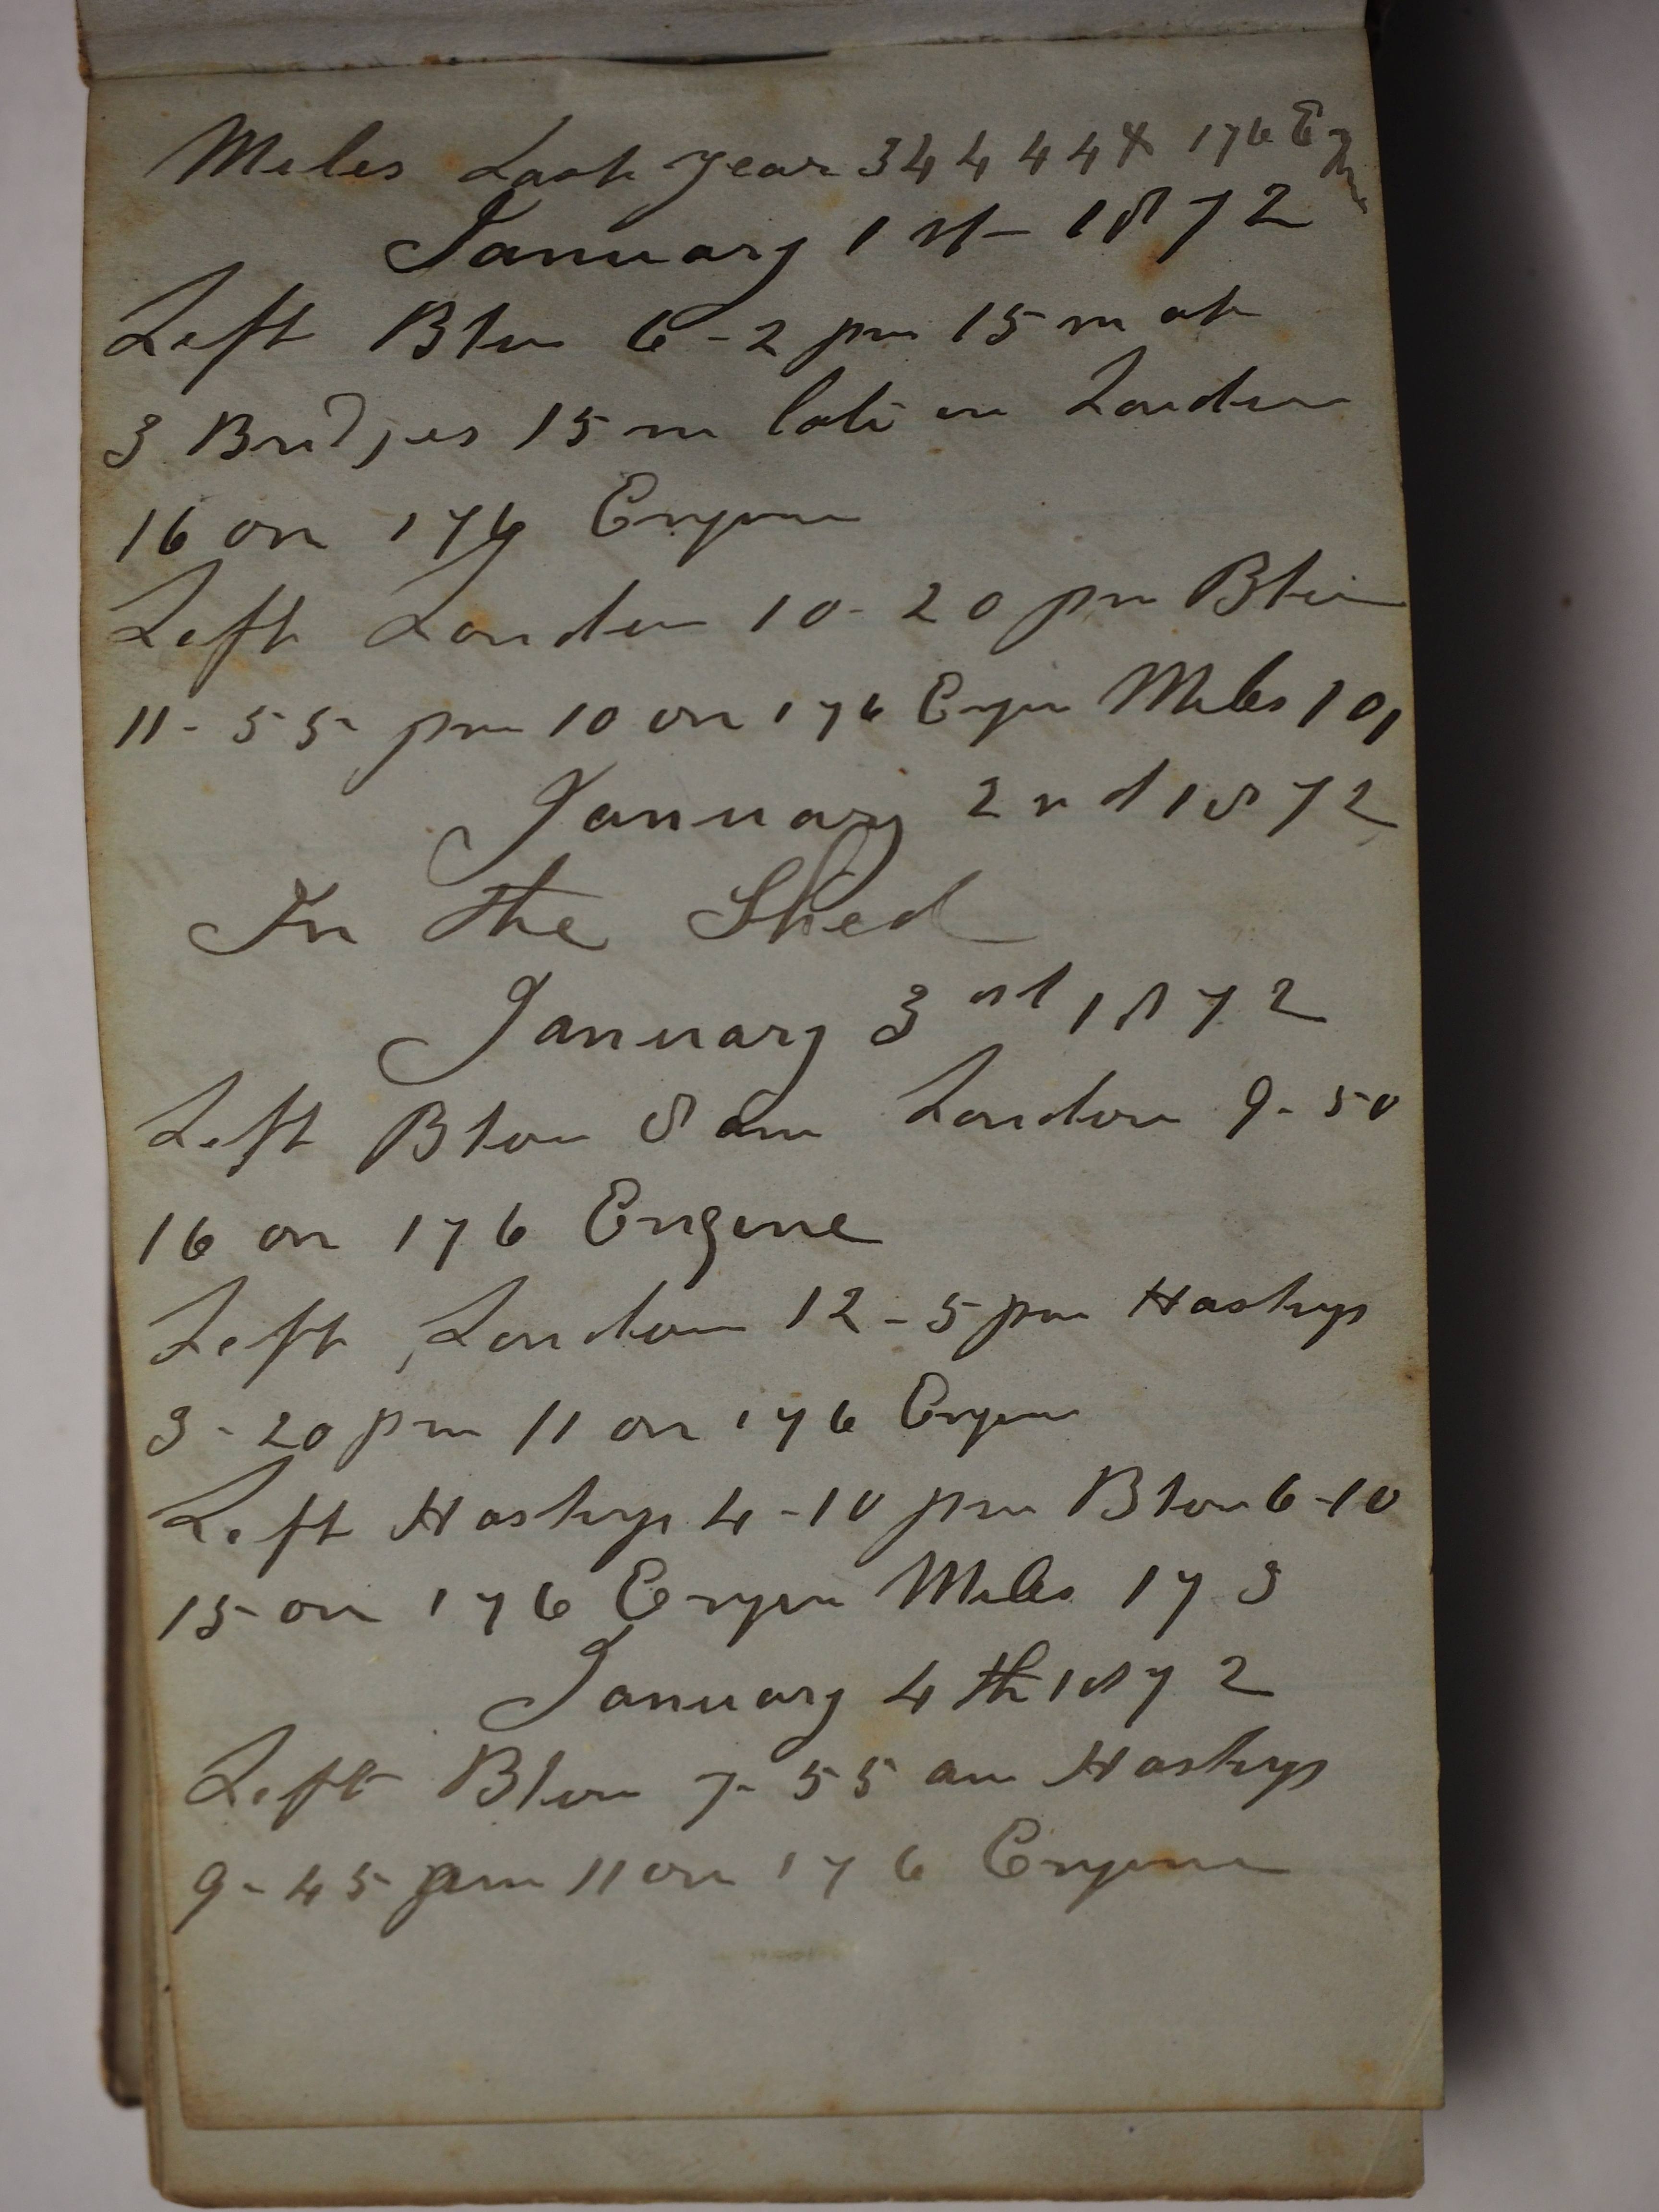 Miles Last year 34444X 176 Engine
January 1st 1872
Left Bton 6-2 pm 15 m at
3 Bridges 15 m late in London
16 on 176 Engine
Left London 10-20 pm Bton
11-55 pm 10 on 176 Engin Miles 101
January 2nd 1872
In the Shed
January 3rd 1872
Left Bton 8 am London 9-50
16 on 176 Engine
Left London 12-5 pm Hastings
3-20 pm 11 on 176 Engine
Left Hastings 4-10 pm Bton 6-10
15 on 176 Engin Miles 173
January 4th 1872
Left Bton 7-55 am Hastings
9-45 am 11 on 176 Engine